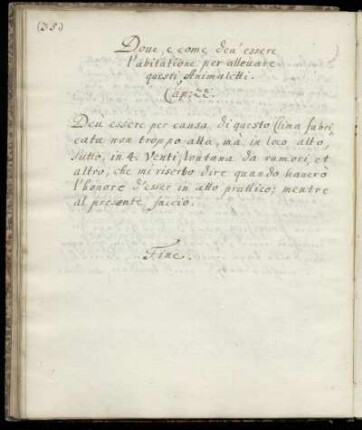 (35)
Doue, e come deu' essere
l'abitatione per alleuare
questi Animaletti.
Cap: 22.
Deu essere per causa di questo Clina fabri
cata non troppo alta, mà in loco alto,
sutto, in 4. Venti, lontana da rumori, et
altro, che mi riserbo dire quando hauerò
l'honore d'esser in atto prattico; mentre
al presente faccio.
Fine.